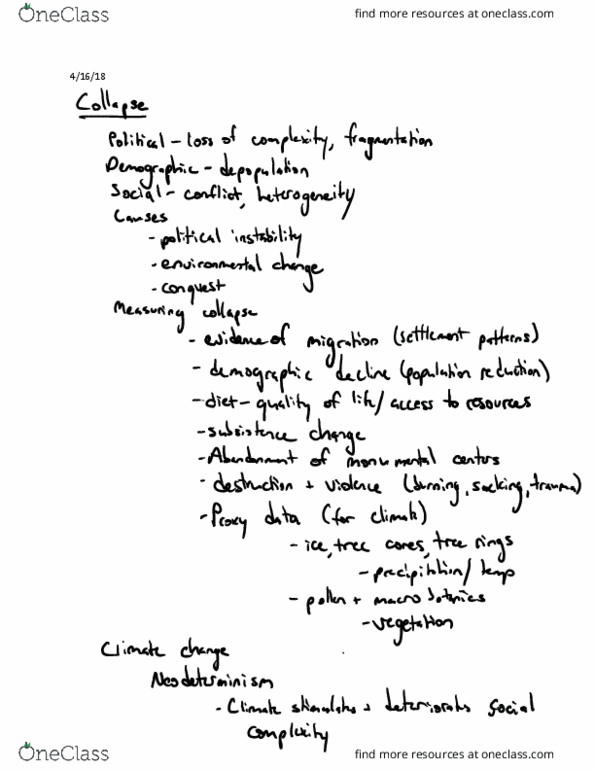 OneClass
find more resources at oneclass.com
4/16/18
Collapse
Political - loss of complexity, fragmentation
Demographic - depopulation
Social - conflict, heterogeneity
Causes
- political instability
- environmental change
- conquest
Measuring collapse
- evidence of migration (settlement patterns)
- demographic decline (population reduction)
- diet - quality of life / access to resources
- subsistence change
- Abandonment of monumental centers
- destruction + violence (burning, sacking, trauma)
- Proxy data (for climate)
- ice, tree cores, tree rings
- precipitation / temp
- pollen + macro botanics
- vegetation
Climate change
Neodeterminism
- Climate stimulates + deteriorates social
complexity
OneClass
find more resources at oneclass.com